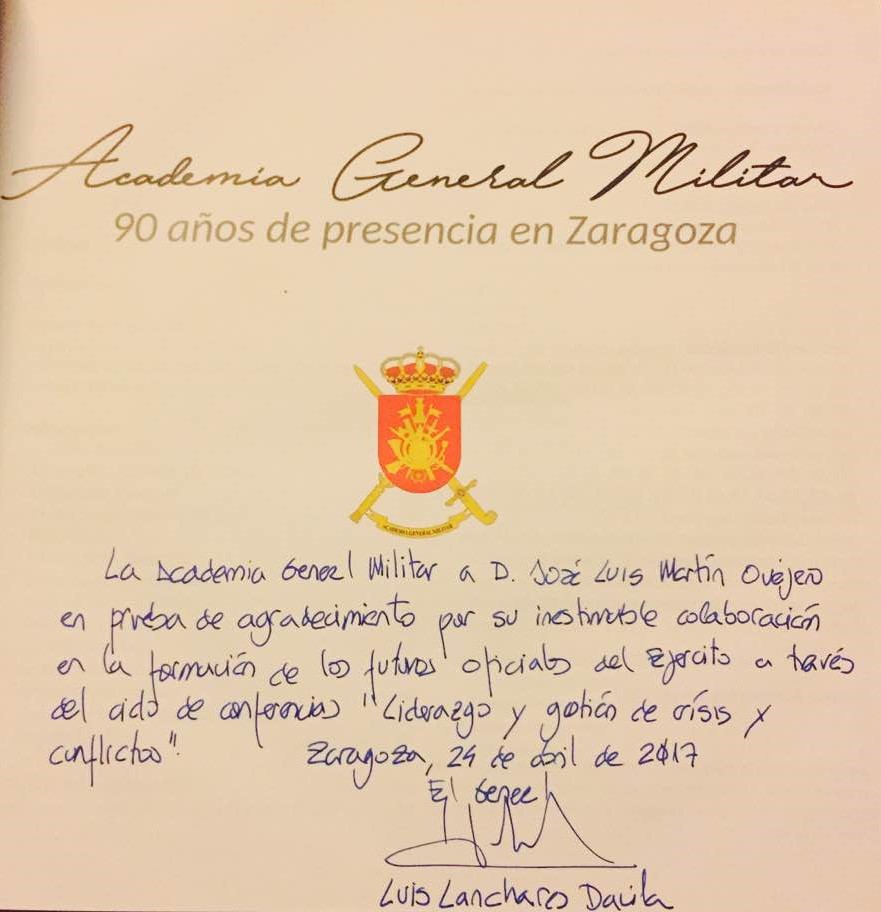 Academia General Militar
90 años de presencia en Zaragoza
ACADEMIA GENERAL MILITAR
La Academia General Militar a D. José Luis Martín Ovejero
en prueba de agradecimiento por su inestimable colaboración
en la formación de los futuros oficiales del Ejército a través
del ciclo de conferencias "Liderazgo y gestión de crisis y
conflictos". Zaragoza, 24 de abril de 2017
El General
Luis Lanchares Dávila